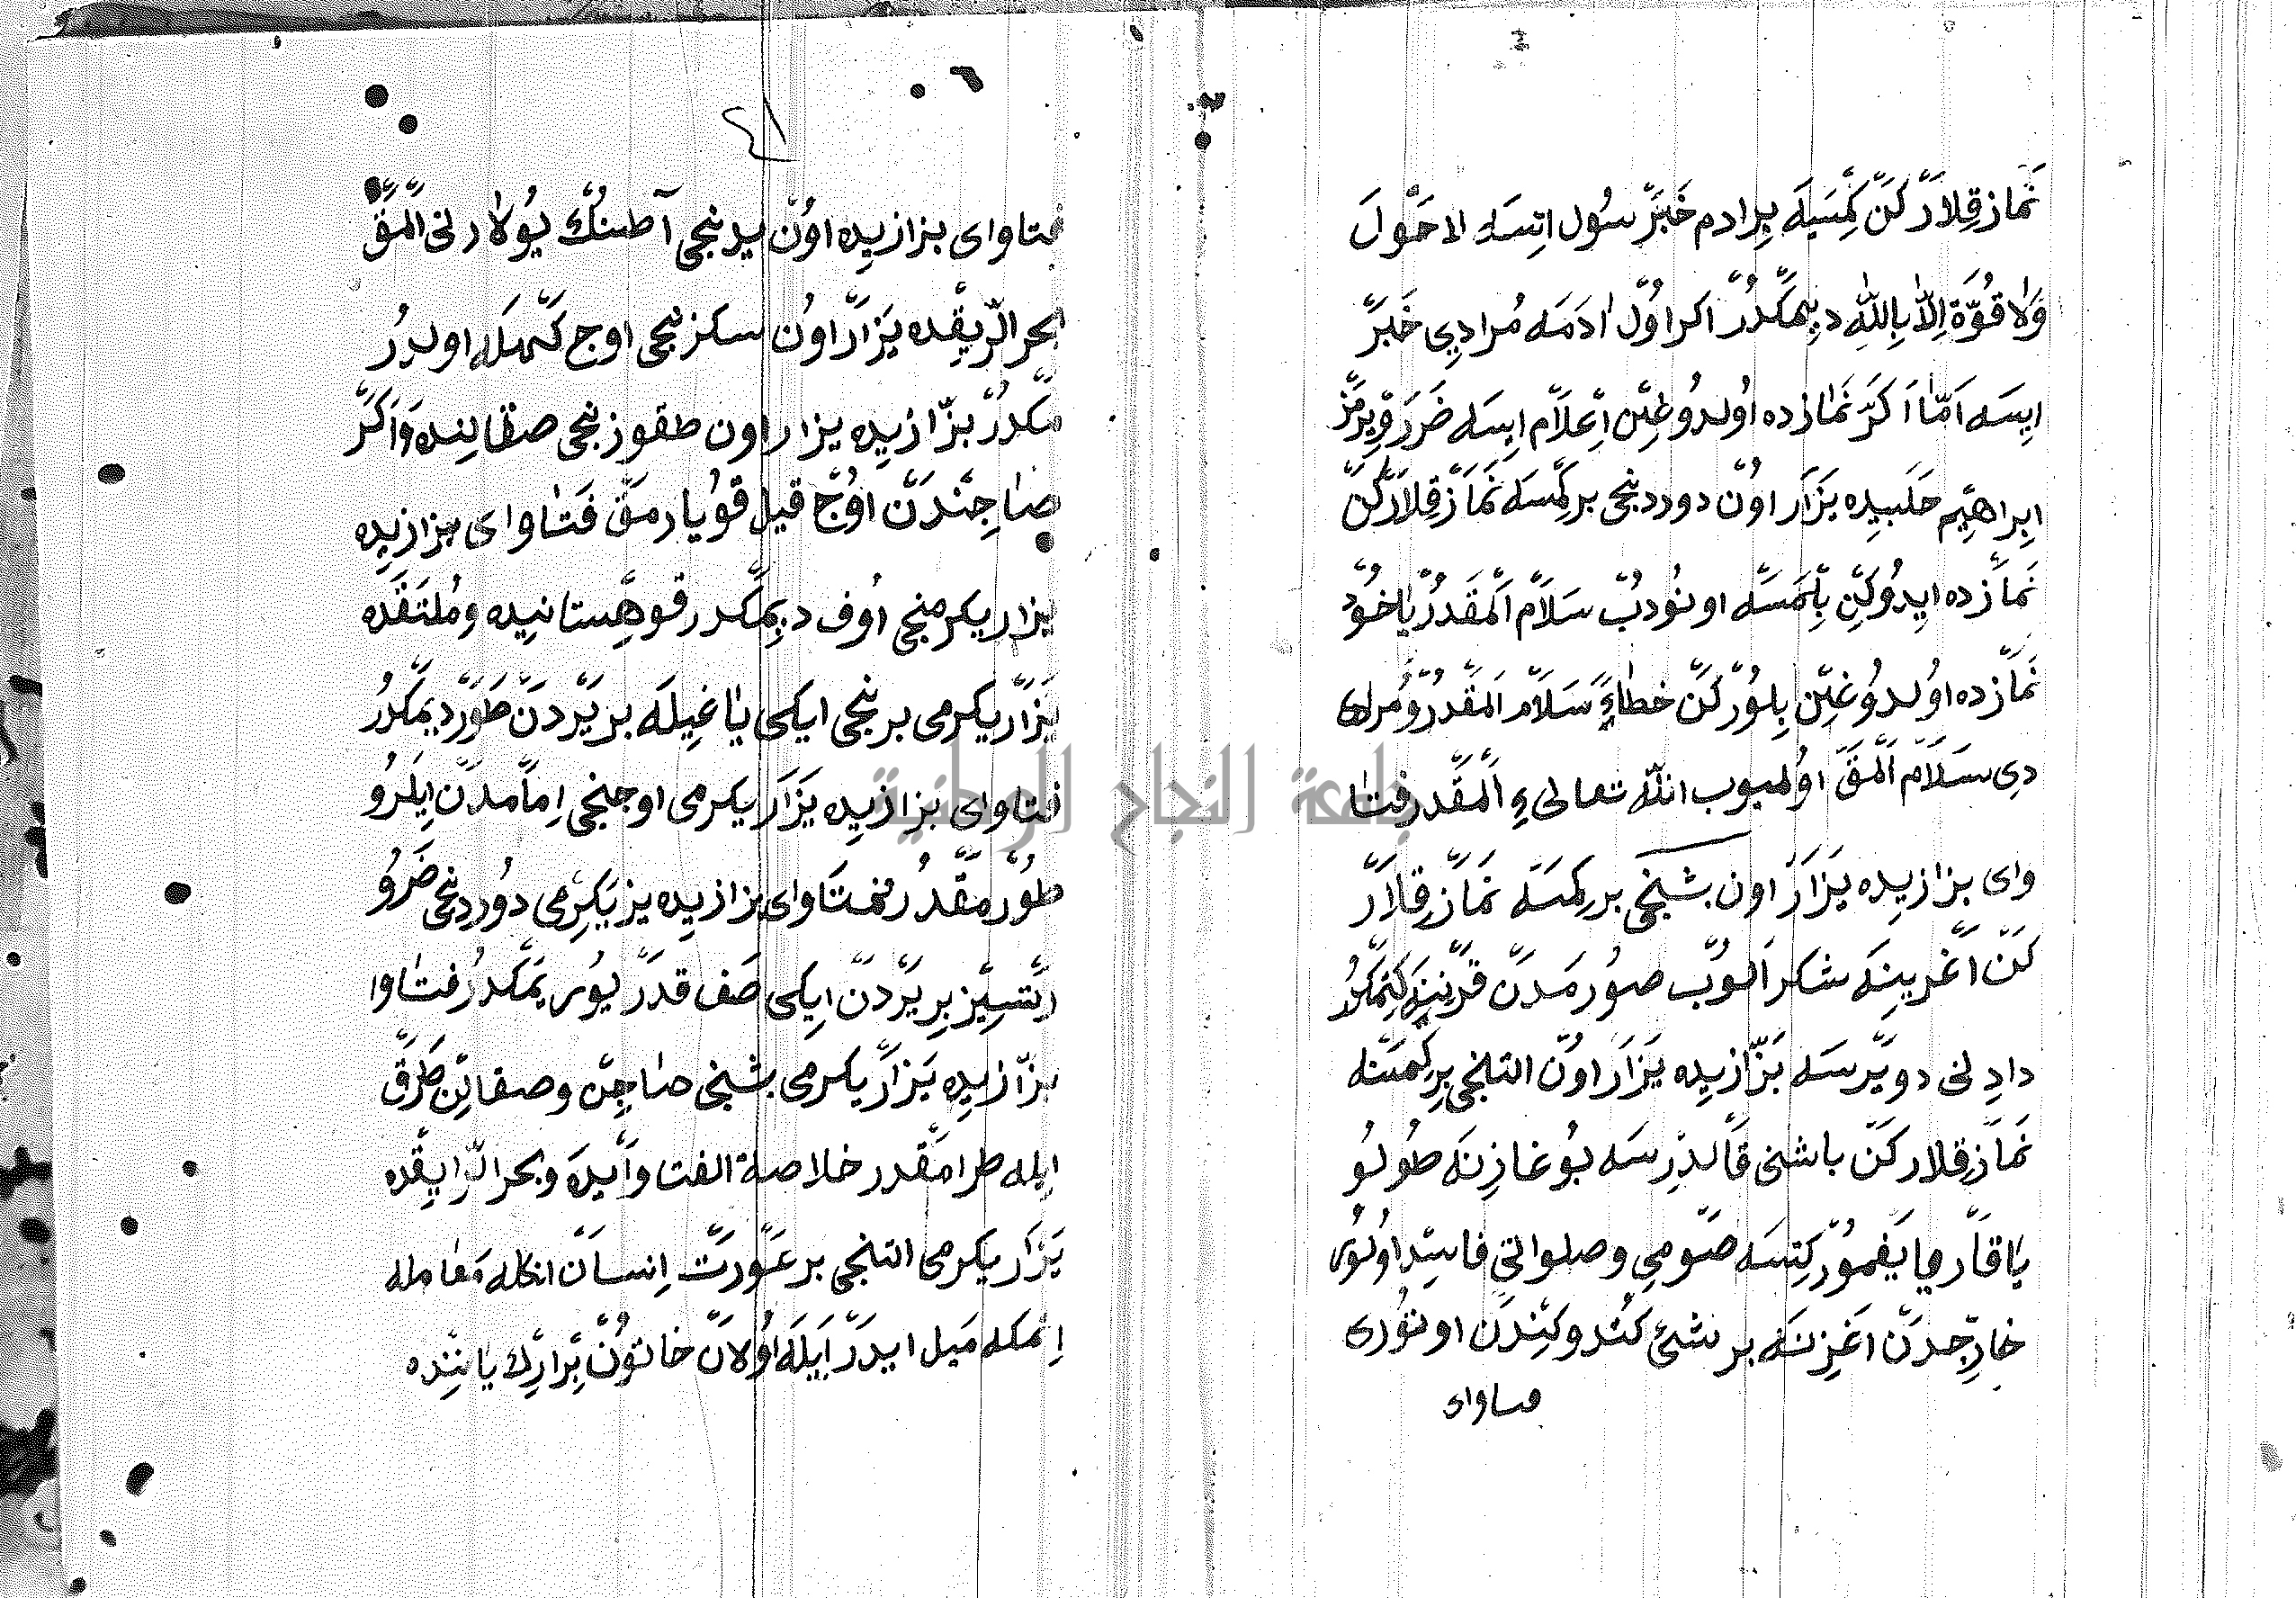 نَمَازْ قِلَارْ كَنْ كِمْسَيَه بِرْ ادم خَبَرْ سُول اتِسَه لا حَوْلَ
وَلَا قُوَّةَ اِلَّا بِاللّٰهِ دِيمَكْدُرْ اكر اُولْ اٰدَمَه مُرادِي خَبَرْ
ايسَه اَمَّا اَكَرْ نَمَازده اولدُوغِنْ اِعْلَامْ ايسَه ضَرَرْ وِيرْمَزْ
ابِراهِيم حَلَبيده يَزَارْ اوُنْ دورد نجى بر كِمْسَه نَمَازْ قِلَارْكَنْ
نَمَازْده ايدُوكِنْ بِلْمَسَه اونُودُبْ سَلَامْ اَلْمَقْدُرْ يَاخُودْ
نَمَازْده اوُلدُوغِنْ بِلُورْكَنْ خطاءً سَلَامْ اَلْمَقْدُرْ و مُرادى
دِى سَلَامْ اَلْمَقْ اوُلميوب اللّٰه تعالى ءِ اَلْمَقْدر فتا
واى بزازيِده يَزَارْ اون بشنجى بر كِمْسَه نَمَازْ قِلَارْ
كَنْ اَغْرينِه شكر اَلوُبْ صوُرمَدَنْ قَرْنِينَه كِتمَكْدُرْ
دادِ نى دويَرسَه بَزّازيِده يَزَارْ اوُنْ التنجى بِر كِمسَنه
نَمَازْ قِلار كَنْ باشنى قَالدِرسَه بُوغازِنَه طُولُو
يَا قَارْ ويا يَغموُرْ كِتِسَه صَوْمِى وصلواتِي فاسِدْ اوُلوُر
خارِجدَنْ اغْزِنَه بر شئ كتُدوكِندَن اوتوُرى
فتاواى
فتاواى بزازيِده اوُنْ يدنجى آطنُكْ يُولار نى اَلْمَقْ
بحر الرّيِقْده يَزَارْ اوُن سكزنجى اوج كَتمَكله اولدُرُ
مَكدُرْ بزّازيِده يزار اون طقوزنجى صقالِنده وَاَكَرْ
صَاجِنْدَنْ اوُجْ قيل قوُپارمَقْ فَتَاواى بزازيِده
يزار يكرمنجى اوُف ديِمَكدر قوهِستانيده و مُلتقَده
يَزَارْ يكرمى برنجى ايكى يَا غِيلَه بر يَرْدَنْ طَوَرْ ديمَكدُر
فتاواى بزازيِده يَزَارْ يكرمى اوجنجى اِمَامدَنْ اِيلَرُو
طوُرْمَقْدُرْ فتَاواى بزازيِده يزَ يكِرمى دوُردنجى ضَرُو
رتْسِيزْ بِر يَرْدَنْ ايِكى صَف قدَرْ يوُر يمَكدُرْ فتَاوا
بزّازيِده يَزَارْ يكرمى بشنجى صَاجِنْ و صقالِنْ طَرَقْ
ايِله طرامَقْدر خلاصة الفتاوَاْيدَه و بحر الرّايِقْده
يَزَارْ يكرمى التنجى بر عَوْرَتْ اِنسَانْ انكله مَعَامله
اِتمكله مَيل ايدَرْ اَيلَه اوُلَانْ خاتوُنْ بِرَارِكْ يَانِنده